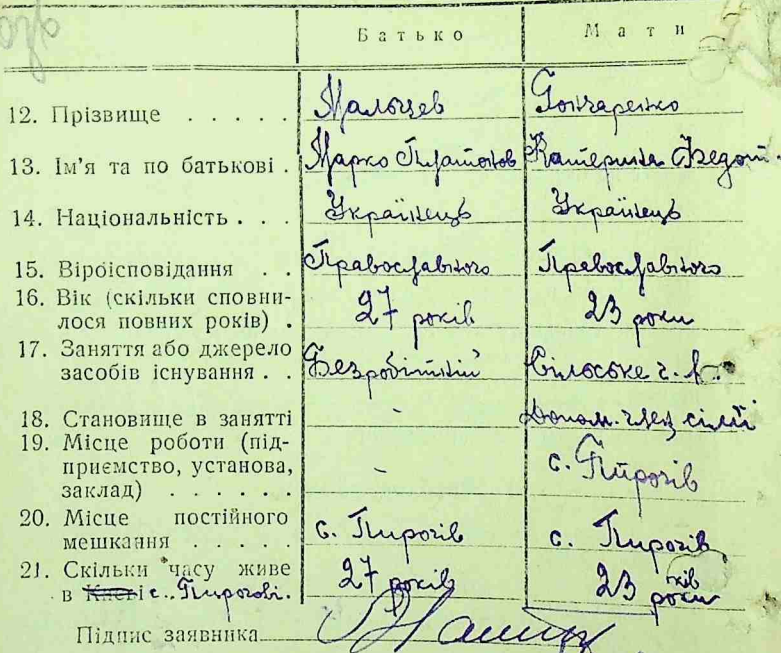 Батько Мати
12. Прізвище . . . . . Мальцев Гончаренко
13. Ім'я та по батькові . Марко Платонов Катерина Федот.
14. Національність . . . Українець Українець
15. Віроісповідання . . Православного Православного
16. Вік (скільки сповни-
лося повних років) . 27 років 23 роки
17. Заняття або джерело
засобів існування . . Безробітний Сільське г.
18. Становище в занятті - Допом. член сімї
19. Місце роботи (під-
приємство, установа,
заклад) . . . . . . - с. Пирогів
20. Місце постійного
мешкання . . . . . с. Пирогів с. Пирогів
21. Скільки часу живе
в Києві с. Пирогові. 27 років 23 роки
Підпис заявника